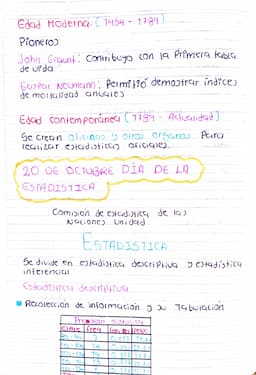 Edad Moderna (1454 - 1789)
Pioneros:
John Graunt: Contribuyo con la Primera tabla
de vida
Gaspar Neumann: Permitió demostrar índices
de mortalidad anuales
Edad contemporánea (1789 - Actualidad)
Se crean oficinas y otros organos Para
realizar estadísticas oficiales.
20 DE OCTUBRE DÍA DE LA
ESTADISTICA
Comisión de estadistica de las
Naciones Unidad
ESTADISTICA
Se divide en estadistica descriptiva y estadística
inferencial
Estadistica descriptiva
Recolección de información y su Tabulación